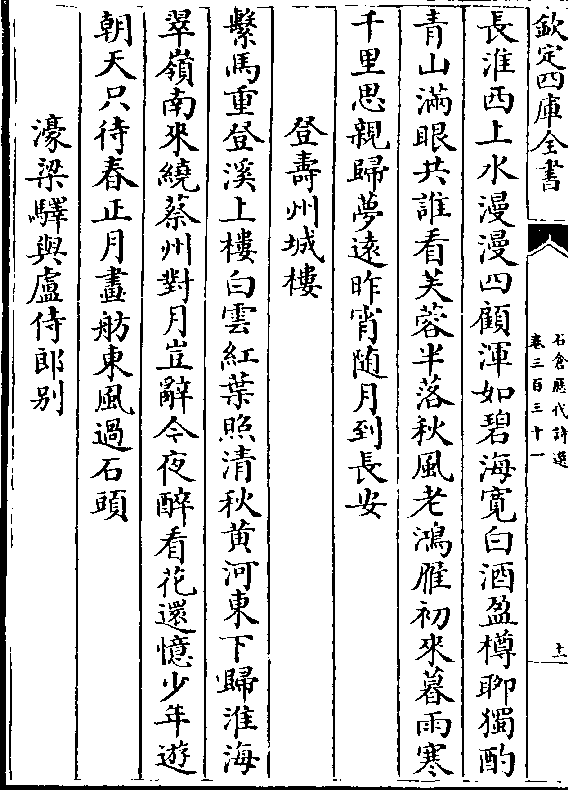 欽定四庫全書
石倉歷代詩選
卷三百三十一
十一
長淮西上水漫漫四顧渾如碧海寛白酒盈樽聊獨酌
青山滿眼共誰看芙蓉半落秋風老鴻雁初來暮雨寒
千里思親歸夢遠昨宵随月到長安
登壽州城樓
繫馬重登溪上樓白雲紅葉照清秋黄河東下歸淮海
翠嶺南來繞蔡州對月豈辭今夜醉看花還憶少年遊
朝天只待春正月畫舫東風過石頭
濠梁驛與盧侍郎别